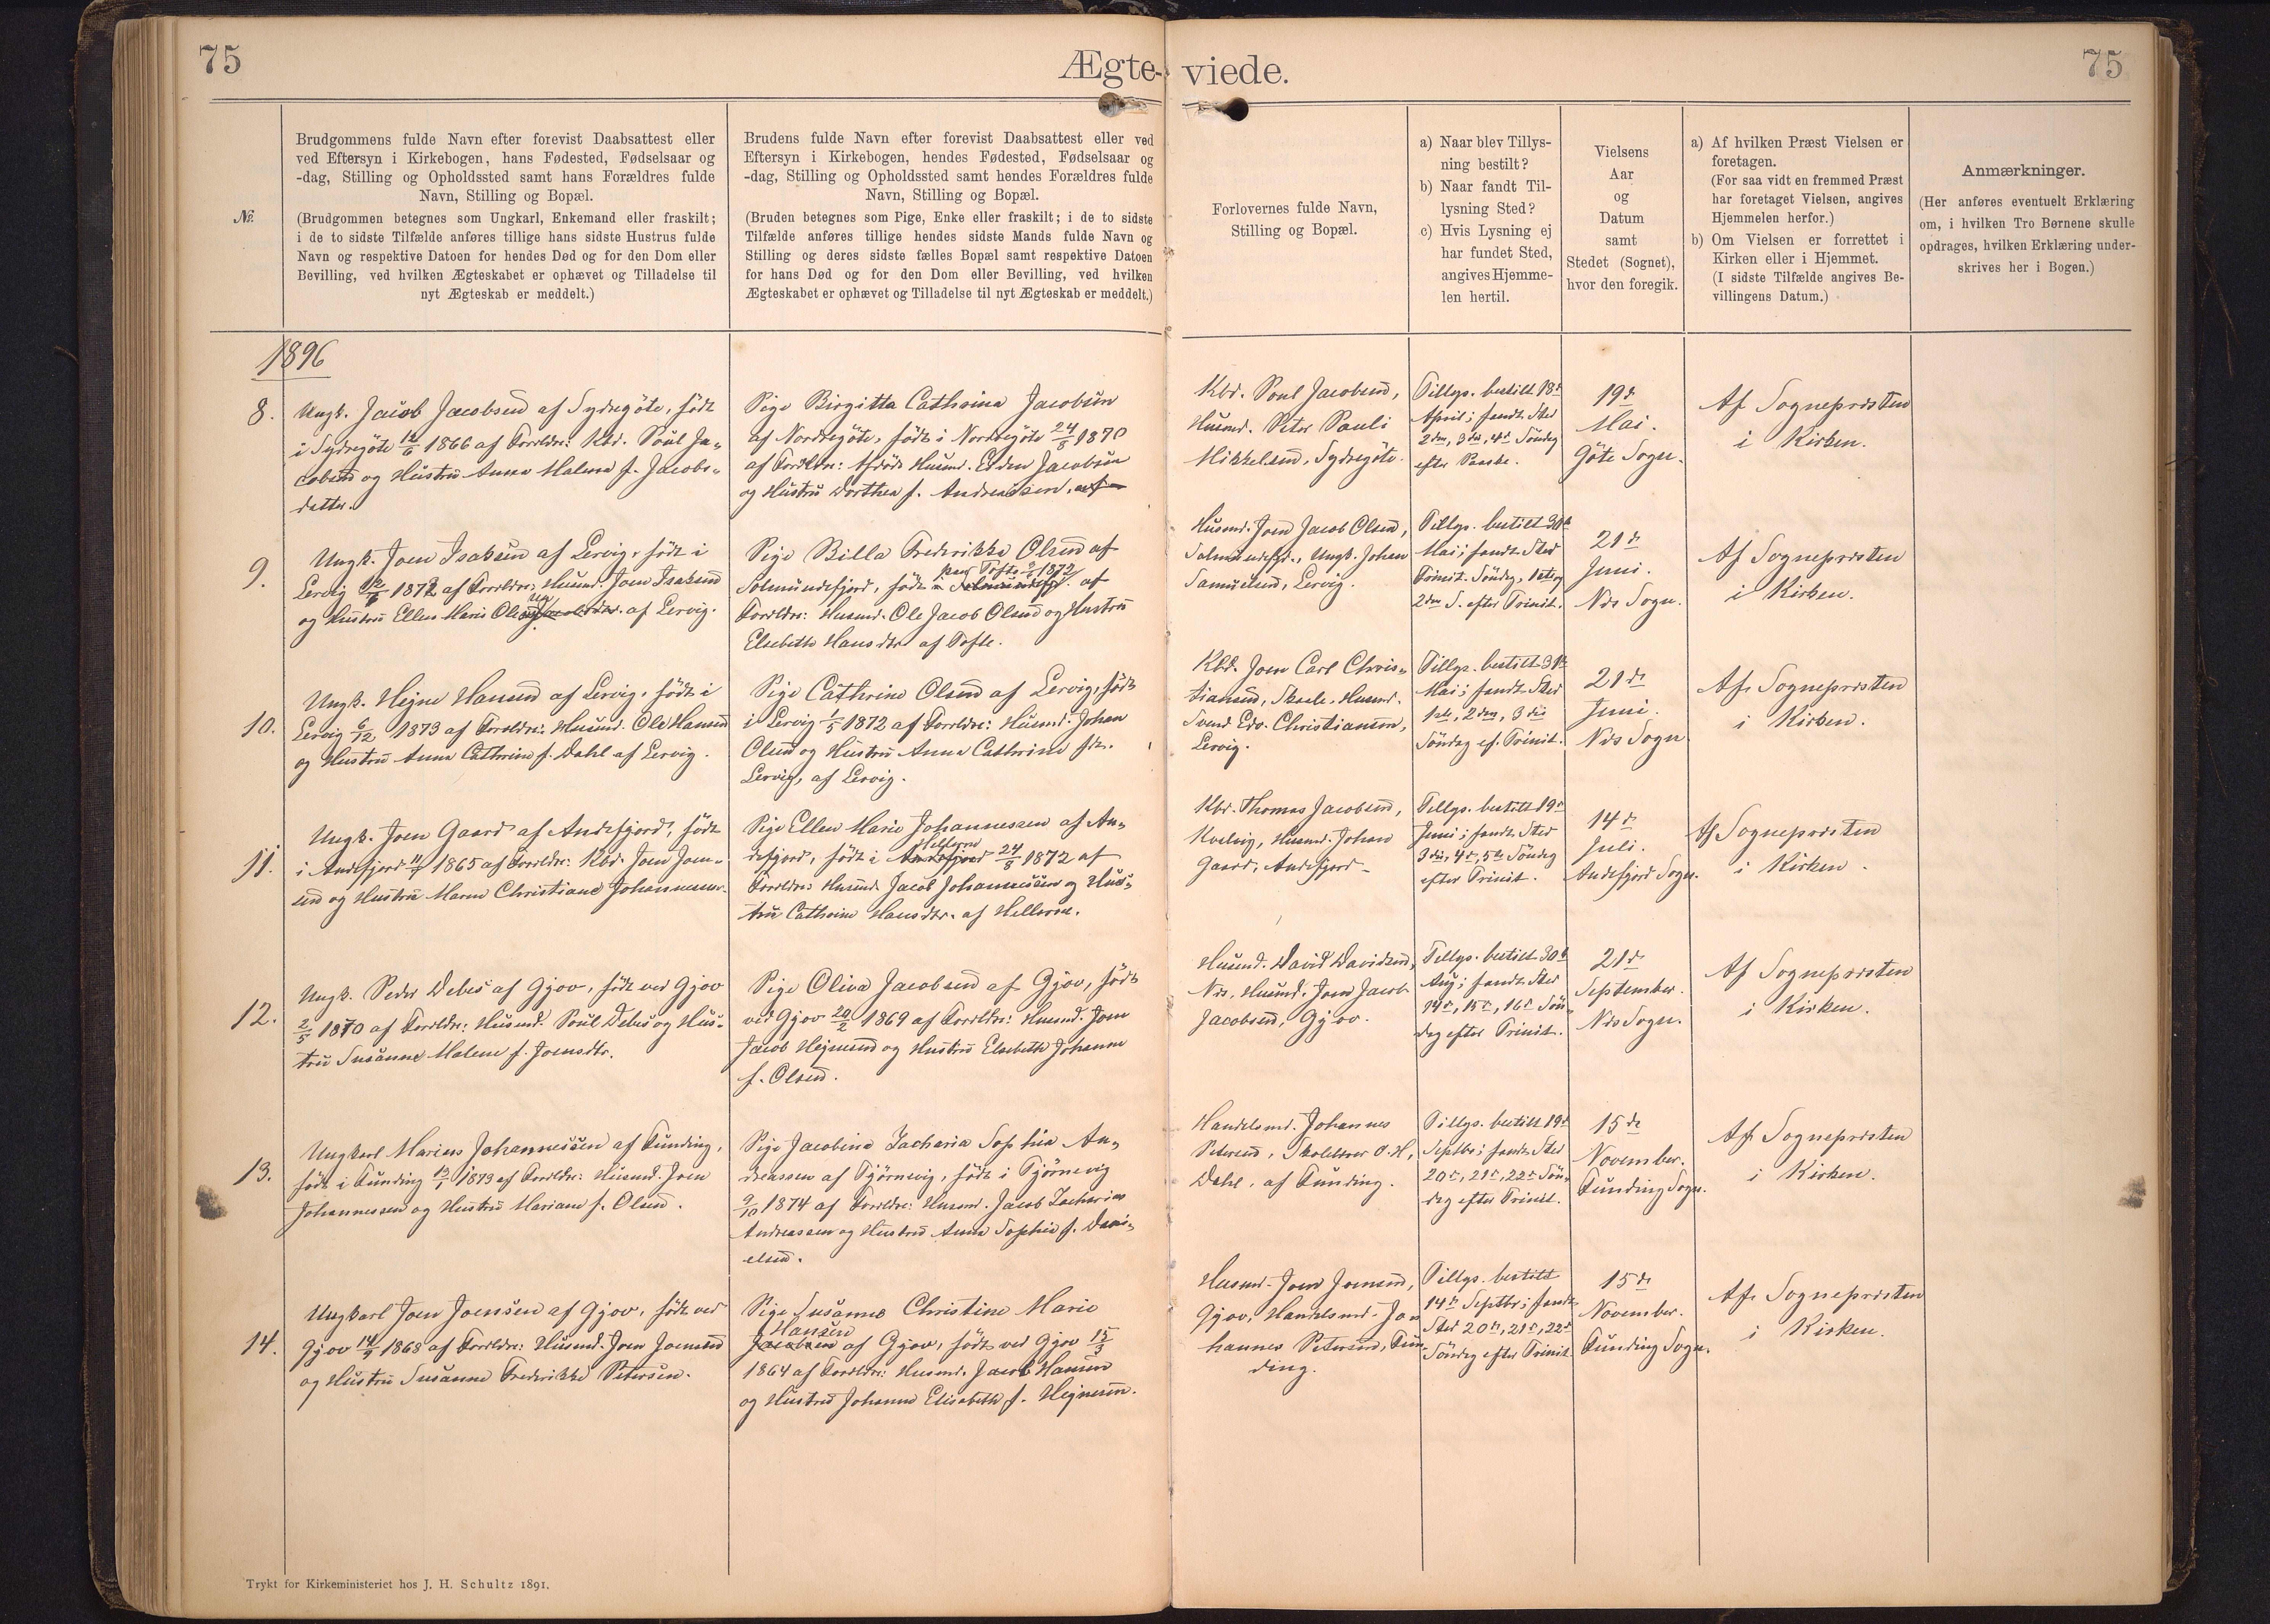 75
Ægte-
viede.
75
№.
Brudgommens fulde Navn efter forevist Daabsattest eller
ved Eftersyn i Kirkebogen, hans Fødested, Fødselsaar og
-dag, Stilling og Opholdssted samt hans Forældres fulde
Navn, Stilling og Bopæl.
(Brudgommen betegnes som Ungkarl, Enkemand eller fraskilt;
i de to sidste Tilfælde anføres tillige hans sidste Hustrus fulde
Navn og respektive Datoen for hendes Død og for den Dom eller
Bevilling, ved hvilken Ægteskabet er ophævet og Tilladelse til
nyt Ægteskab er meddelt.)
Brudens fulde Navn efter forevist Daabsattest eller ved
Eftersyn i Kirkebogen, hendes Fødested, Fødselsaar og
-dag, Stilling og Opholdssted samt hendes Forældres fulde
Navn, Stilling og Bopæl.
(Bruden betegnes som Pige, Enke eller fraskilt; i de to sidste
Tilfælde anføres tillige hendes sidste Mands fulde Navn og
Stilling og deres sidste fælles Bopæl samt respektive Datoen
for hans Død og for den Dom eller Bevilling, ved hvilken
Ægteskabet er ophævet og Tilladelse til nyt Ægteskab er meddelt.)
Forlovernes fulde Navn,
Stilling og Bopæl.
a) Naar blev Tillys-
ning bestilt?
b) Naar fandt Til-
lysning Sted?
c) Hvis Lysning ej
har fundet Sted,
angives Hjemme-
len hertil.
Vielsens
Aar
og
Datum
samt
Stedet (Sognet),
hvor den foregik.
a) Af hvilken Præst Vielsen er
foretagen.
(For saa vidt en fremmed Præst
har foretaget Vielsen, angives
Hjemmelen herfor.)
b) Om Vielsen er forrettet i
Kirken eller i Hjemmet.
(I sidste Tilfælde angives Be-
villingens Datum.)
Anmærkninger.
(Her anføres eventuelt Erklæring
om, i hvilken Tro Børnene skulle
opdrages, hvilken Erklæring under-
skrives her i Bogen.)
1896
8.
Ungk. Jacob Jacobsen af Sydregöte, födt
i Sydregöte 1866 af Forældre: Kbd. Poul Ja-
cobsen og Hustru Anna Malene f. Jacobs-
datter.
Pige Birgitta Cathrina Jacobsen
af Nordregöte, födt i Nordregöte 24/5 1870
af Forældre: Afdöde Husmd. Jacobsen
og Hustru Dorthea f. Andreassen,
Kbd. Poul Jacobsen,
Husmd. Peter Pauli
Mikkelsen, Sydregöte.
Tillys. bestilt 18de
April; fandt Sted
2den, 3die, 4de Söndag
efter Paaske.
19de
Mai.
Göte Sogn.
Af Sognepræsten
i Kirken.
9.
Ungk. Joen Isaksen af Lervig, födt i
Lervig 1872 af Forældre: Husmd. Joen Isaksen
og Hustru Ellen Marie Olsen af Lervig.
Pige Billa Frederikke Olsen af
paa Tofte 1872
Solmundefjord, födt i Solmundefjd. af
Forældre: Husmd. Ole Jacob Olsen og Hustru
Elsebeth Hansdtr. af Tofte.
Husmd. Joen Jacob Olsen,
Solmundefjd., Ungk. Johan
Samuelsen, Lervig.
Tillys. bestilt 30te
Mai; fandt Sted
Trinit. Söndag, 1ste og
2den S. efter Trinit.
21de
Juni.
Næs Sogn.
Af Sognepræsten
i Kirken.
10.
Ungk. Hejne Hansen af Lervig, födt i
Lervig 6/12 1873 af Forældre: Husmd. Ole Hansen
og Hustru Anna Cathrine f. Dahl af Lervig.
Pige Cathrine Olsen af Lervig, födt
i Lervig 1/5 1872 af Forældre: Husmd. Johan
Olsen og Hustru Anna Cathrine
Lervig, af Lervig.
Kbd. Joen Carl Chris-
tiansen, Skaale, Husmd.
Svend Edv. Christiansen,
Lervig.
Tillys. bestilt 31te
Mai; fandt Sted
1ste, 2den, 3die
Söndag ef. Trinit.
21de
Juni.
Næs Sogn
Af Sognepræsten
i Kirken.
11.
Ungk. Joen Gaard af Andefjord, födt
i Andefjord 1865 af Forældre: Kbd. Joen Joen-
sen og Hustru Maren Christiane Johannessen.
Pige Ellen Marie Johannessen af An-
Hellerne
defjord, födt i Andefjord 24/8 1872 af
Forældre: Husmd. Jacob Johannessen og Hus-
tru Cathrine Hansdtr. af Hellerne.
Kbd. Thomas Jacobsen,
Kvalvig, Husmd. Johan
Gaard, Andefjord.
Tillys. bestilt 19de
Juni; fandt Sted
3die, 4de, 5te Söndag
efter Trinit.
14de
Juli.
Andefjord Sogn.
Af Sognepræsten
i Kirken.
12.
Ungk. Peder Debes af Gjov, födt ved Gjov
2/5 1870 af Forældre: Husmd. Poul Debes og Hus-
tru Susanne Malene f. Joensdtr.
Pige Oliva Jacobsen af Gjov, födt
ved Gjov 20/2 1869 af Forældre: Husmd. Joen
Jacob Hejnesen og Hustru Elsebeth Johanne
f. Olsen.
Husmd. David Davidsen,
Næs, Husmd. Joen Jacob
Jacobsen, Gjov.
Tillys. bestilt 30te
Aug; fandt Sted
14de, 15de, 16de Sön-
dag efter Trinit.
21de
September.
Næs Sogn.
Af Sognepræsten
i Kirken.
13.
Ungkarl Marius Johannessen af Funding,
födt i Funding 13/1 1873 af Forældre: Husmd. Joen
Johannessen og Hustru Mariane f. Olsen.
Pige Jacobina Zacharia Sophia An-
dreassen af Tjörnevig, födt i Tjörnevig
9/10 1874 af Forældre: Husmd. Jacob Zacharias
Andreassen og Hustru Anna Sophie f. Dani-
elsen.
Handelsmd. Johannes
Petersen, Skolelærer O. H.
Dahl, af Funding.
Tillys. bestilt 19de
Septbr; fandt Sted
20de, 21de, 22de Sön-
dag efter Trinit.
15de
November.
Funding Sogn.
Af Sognepræsten
i Kirken.
14.
Ungkarl Joen Joensen af Gjov, födt ved
Gjov 14/9 1868 af Forældre: Husmd. Joen Joensen
og Hustru Susanne Frederikke Petersen.
Pige Susanne Christine Marie
Hansen
Jacobsen af Gjov, födt ved Gjov 15/3
1864 af Forældre: Husmd. Jacob Hansen
og Hustru Johanne Elisabeth f. Hejnesen.
Husmd. Joen Joensen,
Gjov, Handelsmd. Jo-
hannes Petersen, Fun-
ding.
Tillys. bestilt
14de Septbr; fandt
Sted 20de, 21de, 22de
Söndag efter Trinit.
15de
November.
Funding Sogn.
Af Sognepræsten
i Kirken.
Trykt for Kirkeministeriet hos J. H. Schultz 1891.